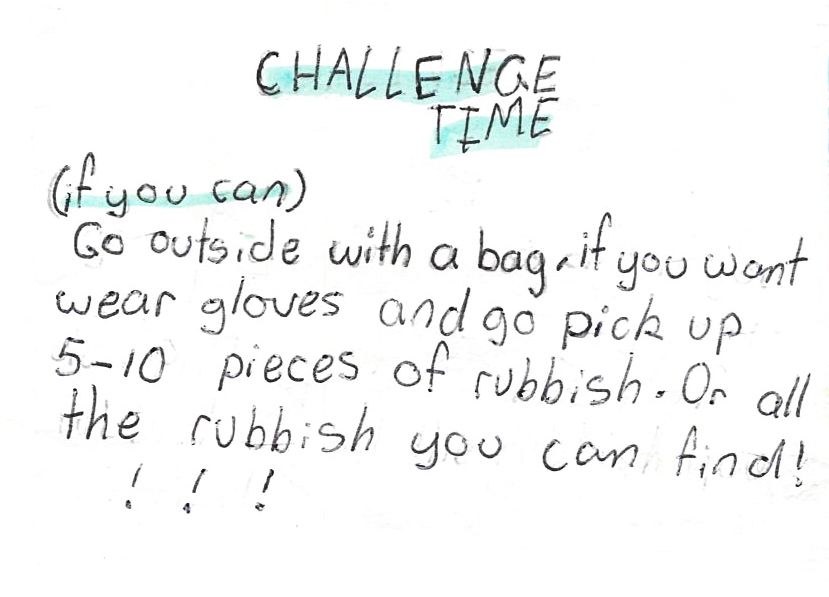 CHALLENGE
TIME
(if you can)
Go outside with a bag, if you want
wear gloves and go pick up
5-10 pieces of rubbish. Or all
the rubbish you can find!
! ! !